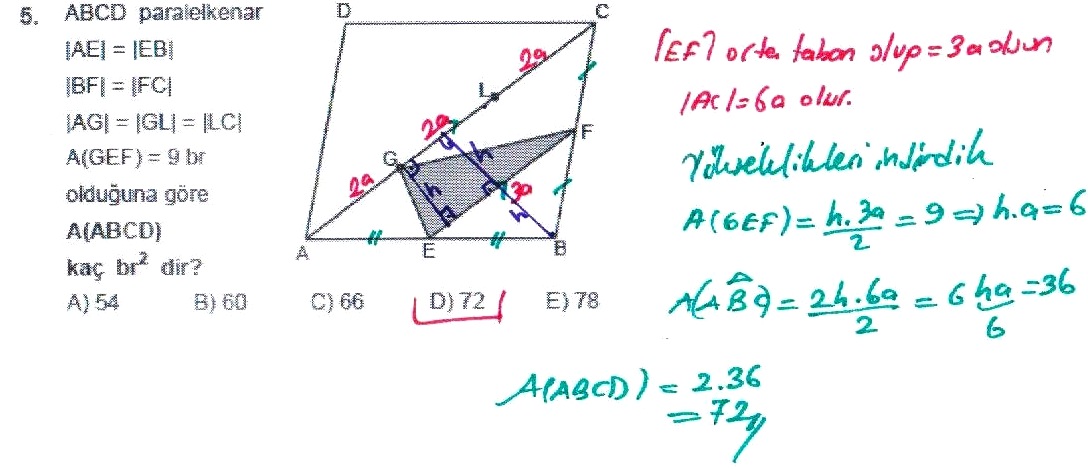 5. ABCD paralelkenar
|AE| = |EB|
|BF| = |FC|
|AG| = |GL| = |LC|
A(GEF) = 9 br
olduğuna göre
A(ABCD)
kaç br² dir?
A) 54 B) 60 C) 66 D) 72 E) 78
D C
2a
L
2a
F
G h
2a h 3a
h
A E B
[EF] orta taban olup = 3a olsun
|AC| = 6a olur.
Yükseklikleri indirdik
A(GEF) = h.3a/2 = 9 => h.a = 6
A(ABC) = 2h.6a/2 = 6 ha = 36
6
A(ABCD) = 2.36
= 72